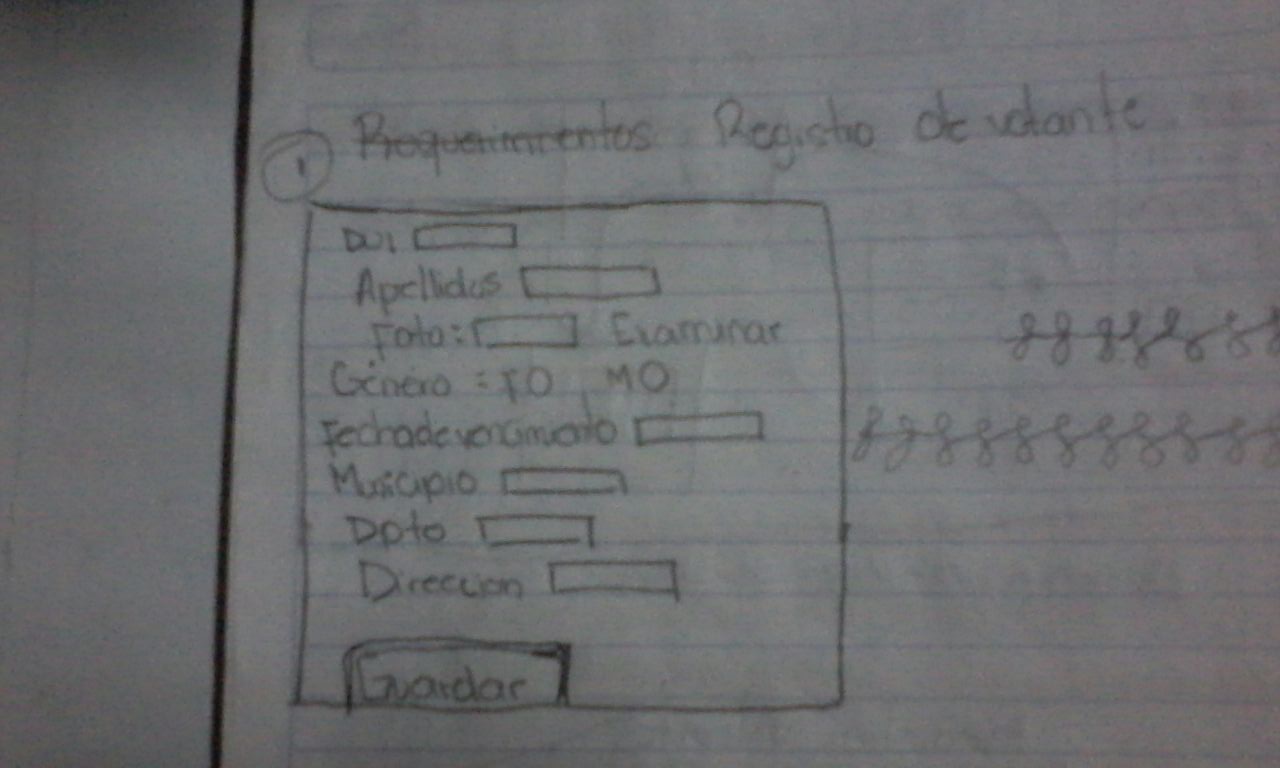 1 Requerimientos Registro de votante
DUI
Apellidos
Foto: Examinar
Género: F M
Fecha de vencimiento
Municipio
Dpto
Direccion
Guardar